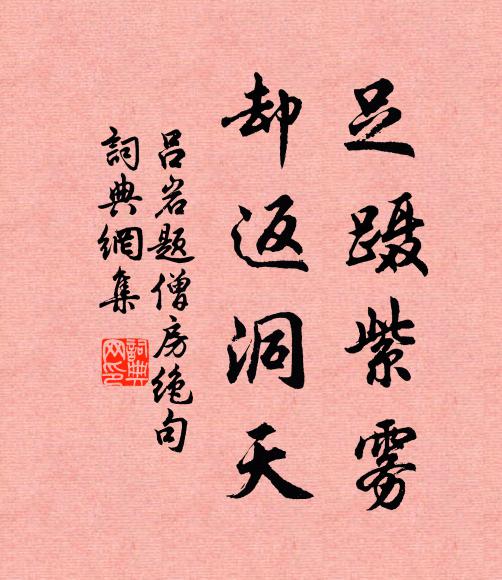 足蹑紫雾
却返洞天
吕岩题僧房绝句
詞典網集
詞典網印